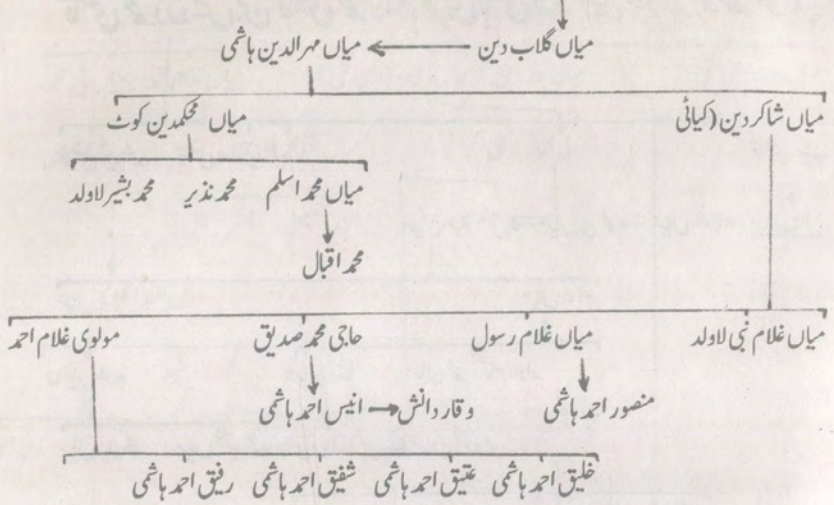 میاں گلاب دین ← میاں مہرالدین ہاشمی
میاں شاکر دین (کیائی میاں محکمدین کوٹ
میاں محمد اسلم محمد نذیر محمد بشیر لاولد
محمد اقبال
میاں غلام نبی لاولد میاں غلام رسول حاجی محمد صدیق مولوی غلام احمد
منصور احمد ہاشمی وقار دانش ← انیس احمد ہاشمی
خلیق احمد ہاشمی عتیق احمد ہاشمی شفیق احمد ہاشمی رفیق احمد ہاشمی